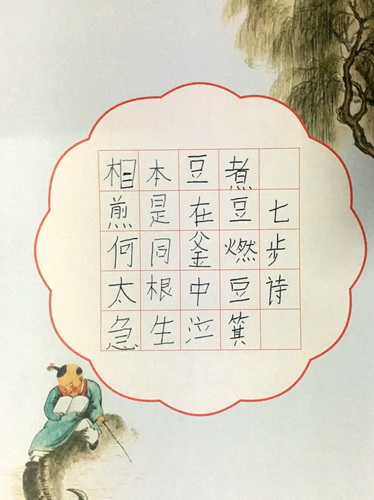 七步诗
煮豆燃豆箕
豆在釜中泣
本是同根生
相煎何太急